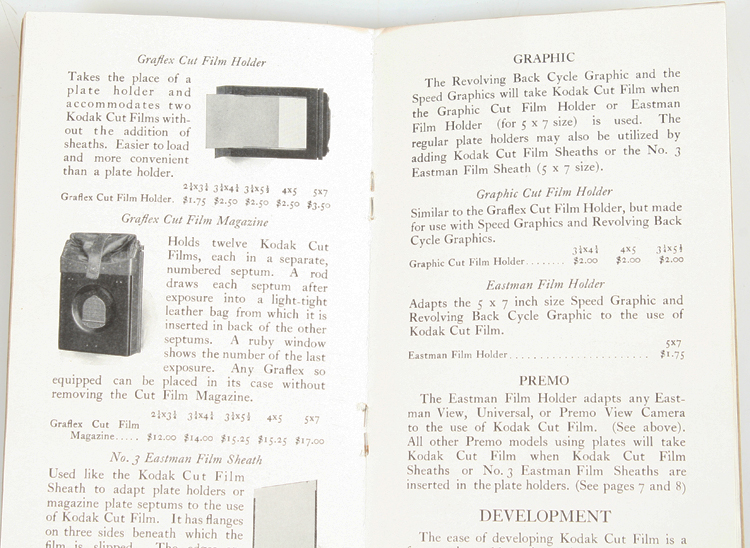 Graflex Cut Film Holder
Takes the place of a
plate holder and
accommodates two
Kodak Cut Films with-
out the addition of
sheaths. Easier to load
and more convenient
than a plate holder.
2¼x3¼ 3¼x4¼ 3¼x5½ 4x5 5x7
Graflex Cut Film Holder. $1.75 $2.50 $2.50 $2.50 $3.50
Graflex Cut Film Magazine
Holds twelve Kodak Cut
Films, each in a separate,
numbered septum. A rod
draws each septum after
exposure into a light-tight
leather bag from which it is
inserted in back of the other
septums. A ruby window
shows the number of the last
exposure. Any Graflex so
equipped can be placed in its case without
removing the Cut Film Magazine.
2¼x3¼ 3¼x4¼ 3¼x5½ 4x5 5x7
Graflex Cut Film
Magazine..... $12.00 $14.00 $15.25 $15.25 $17.00
No. 3 Eastman Film Sheath
Used like the Kodak Cut Film
Sheath to adapt plate holders or
magazine plate septums to the use
of Kodak Cut Film. It has flanges
on three sides beneath which the
film is slipped. The
GRAPHIC
The Revolving Back Cycle Graphic and the
Speed Graphics will take Kodak Cut Film when
the Graphic Cut Film Holder or Eastman
Film Holder (for 5 x 7 size) is used. The
regular plate holders may also be utilized by
adding Kodak Cut Film Sheaths or the No. 3
Eastman Film Sheath (5 x 7 size).
Graphic Cut Film Holder
Similar to the Graflex Cut Film Holder, but made
for use with Speed Graphics and Revolving Back
Cycle Graphics.
3¼x4¼ 4x5 3¼x5½
Graphic Cut Film Holder........ $2.00 $2.00 $2.00
Eastman Film Holder
Adapts the 5 x 7 inch size Speed Graphic and
Revolving Back Cycle Graphic to the use of
Kodak Cut Film.
5x7
Eastman Film Holder........................ $1.75
PREMO
The Eastman Film Holder adapts any East-
man View, Universal, or Premo View Camera
to the use of Kodak Cut Film. (See above).
All other Premo models using plates will take
Kodak Cut Film when Kodak Cut Film
Sheaths or No. 3 Eastman Film Sheaths are
inserted in the plate holders. (See pages 7 and 8)
DEVELOPMENT
The ease of developing Kodak Cut Film is a